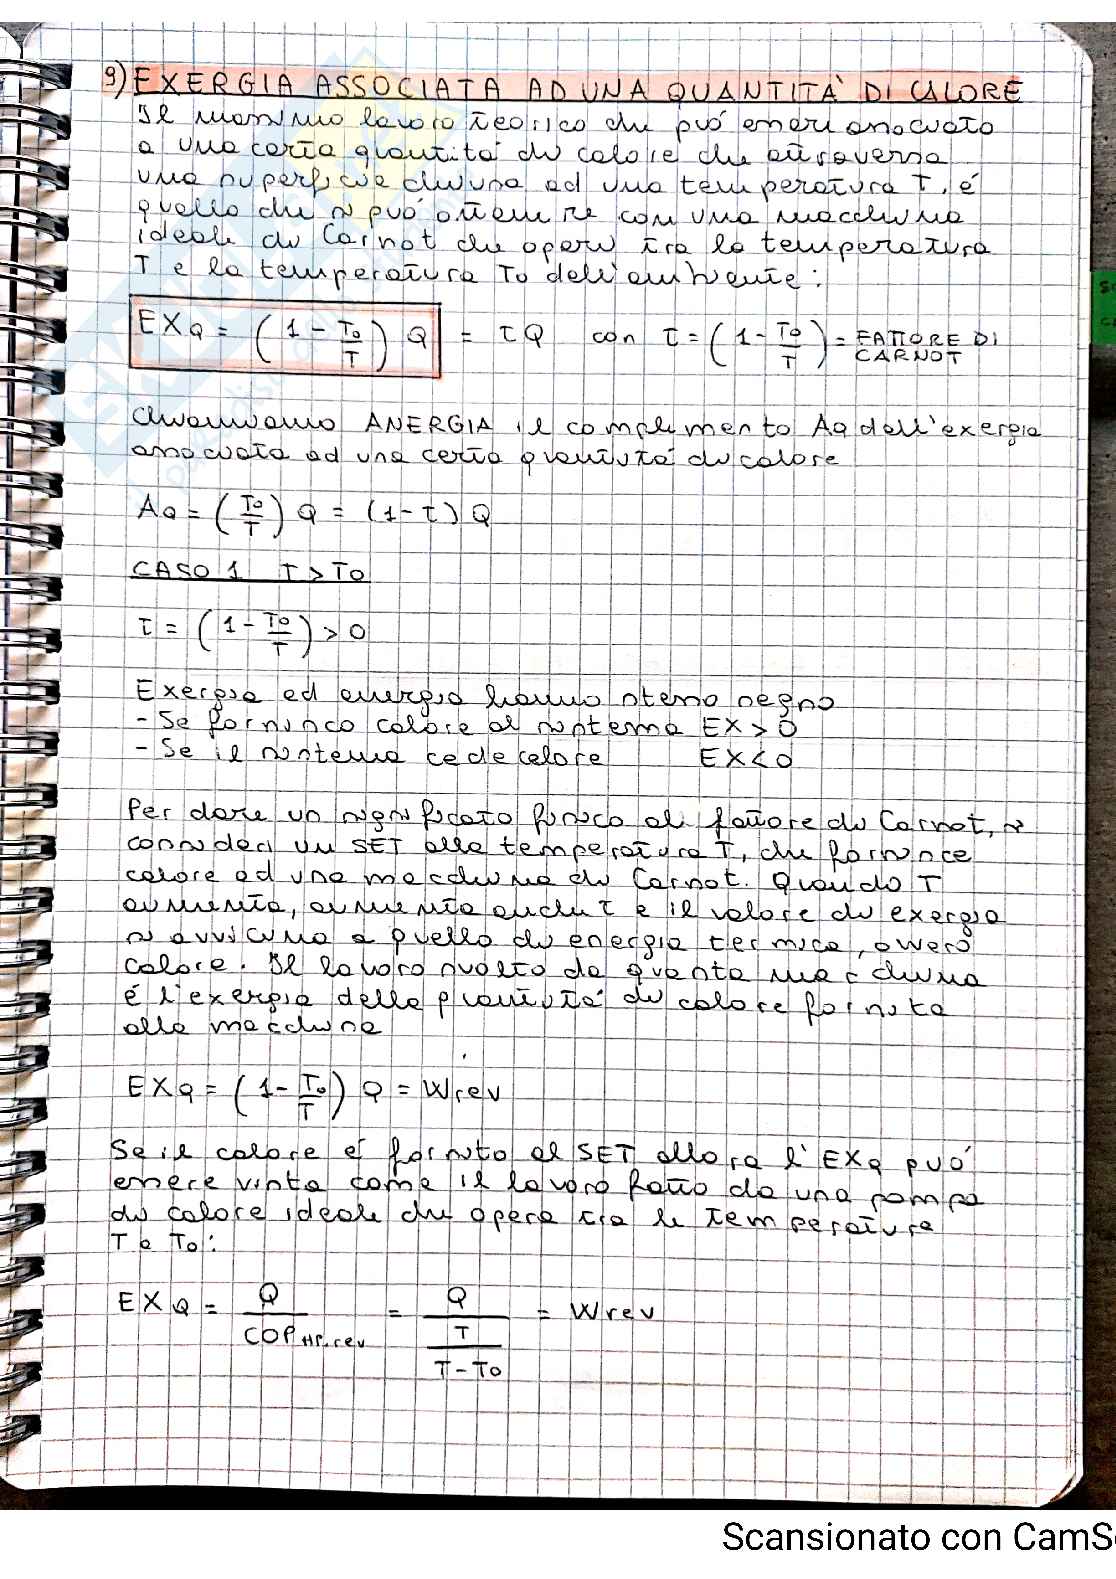 9) EXERGIA ASSOCIATA AD UNA QUANTITÀ DI CALORE
Il massimo lavoro teorico che può essere associato
a una certa quantità di calore che attraversa
una superficie chiusa ad una temperatura T, è
quello che si può ottenere con una macchina
ideale di Carnot che operi tra la temperatura
T e la temperatura T0 dell'ambiente:
EXQ = (1 - T0/T) Q = τQ con τ = (1 - T0/T) = FATTORE DI CARNOT
Chiamiamo ANERGIA il complemento AQ dell'exergia
associata ad una certa quantità di calore
AQ = (T0/T) Q = (1-τ) Q
CASO 1 T > T0
τ = (1 - T0/T) > 0
Exergia ed energia hanno stesso segno
- Se fornisco calore al sistema EX > 0
- Se il sistema cede calore EX < 0
Per dare un significato fisico al fattore di Carnot, si
consideri un SET alla temperatura T, che fornisce
calore ad una macchina di Carnot. Quando T
aumenta, aumenta anche τ e il valore di exergia
si avvicina a quello di energia termica, ovvero
calore. Il lavoro svolto da questa macchina
è l'exergia della quantità di calore fornita
alla macchina
EXQ = (1 - T0/T) Q = Wrev
Se il calore è fornito al SET allora l'EXQ può
essere vista come il lavoro fatto da una pompa
di calore ideale che opera tra le temperature
T e T0:
EXQ = Q / COP HP,rev = Q / (T / (T - T0)) = Wrev
Scansionato con CamS